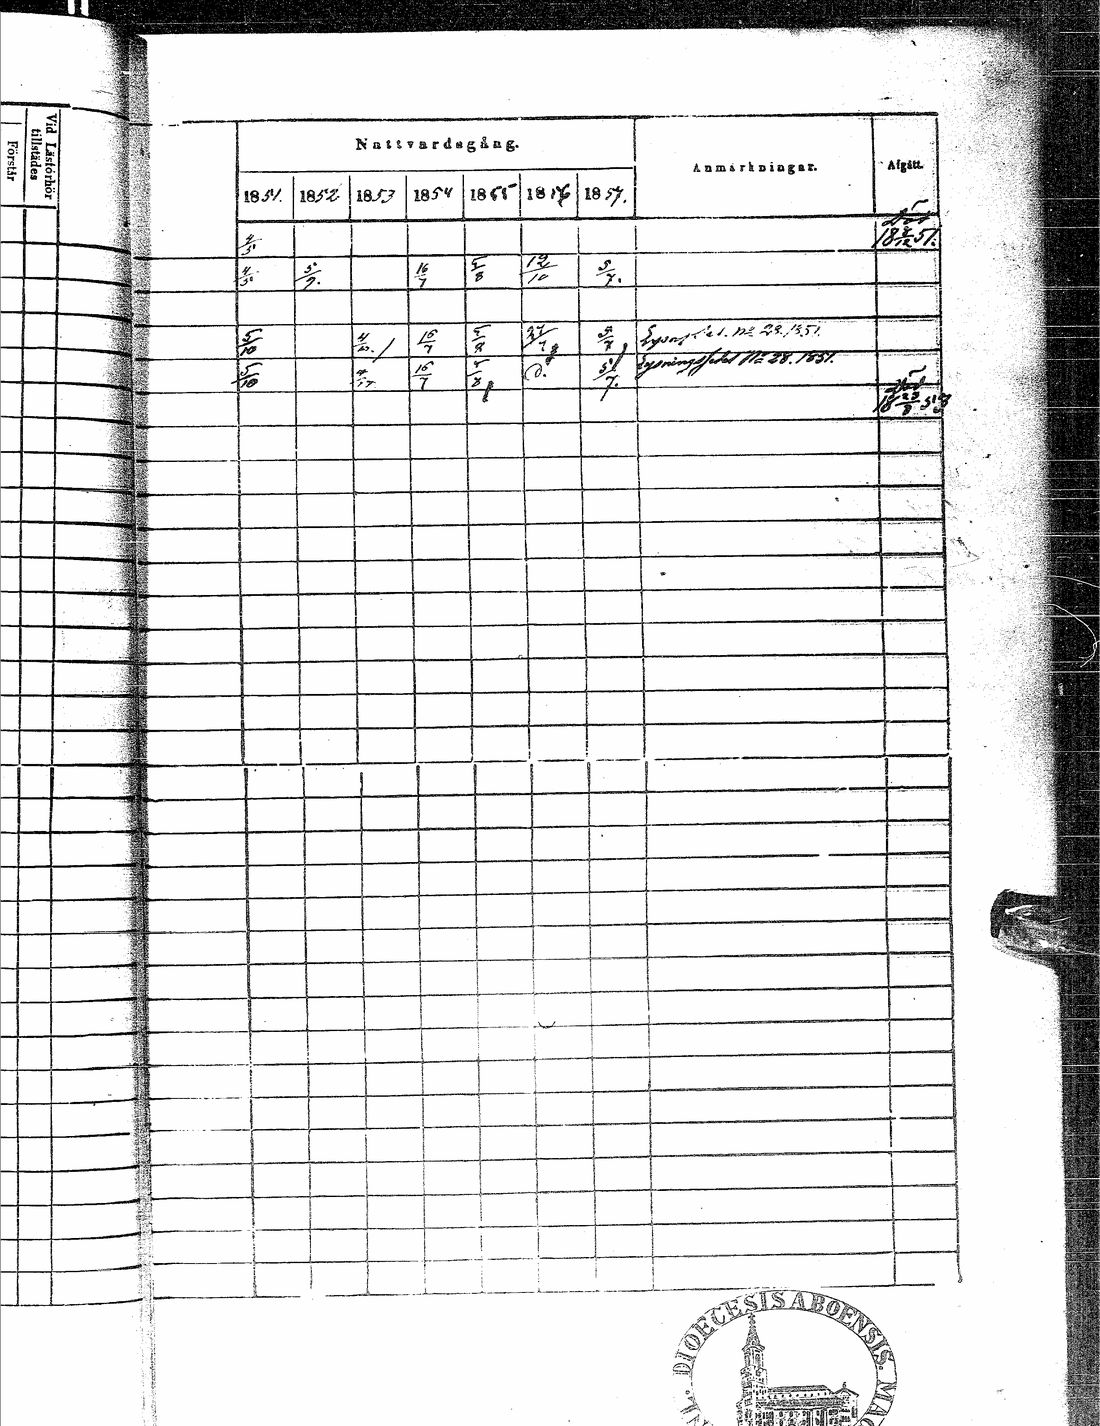 Vid Läsförhör
tillstädes
Förstår
Nattvardsgång.
Anmärkningar.
Afgått.
1851. 1852 1853 1854 1855 1856 1857.
Död
18 8/12 51.
4/5
4/5 5/9. 16/7 5/8 12/10 5/7.
5/10 16/7 5/8 5/7 No 28. 1851.
5/10 16/7 5/8 D. 5/7. Lysningssedel No 28. 1851.
Död
DIOECESIS ABOENSIS. MAG